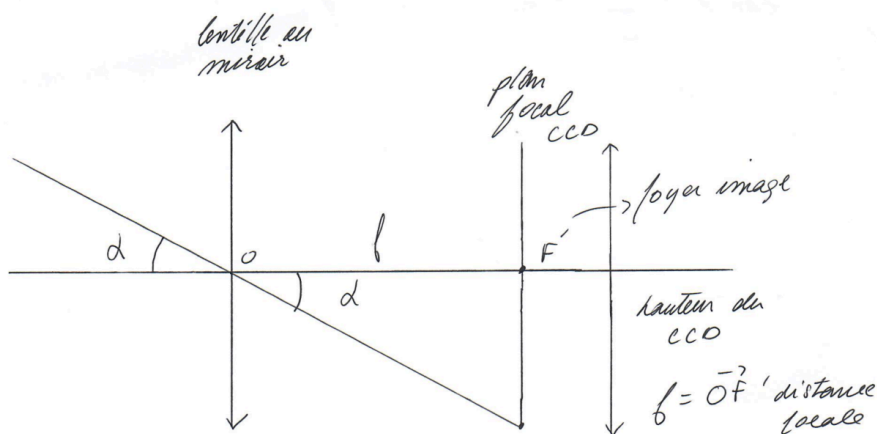 lentille ou
miroir
plan
focal
CCD
foyer image
α
O
f
F'
α
hauteur du
CCD
f = OF' distance
focale